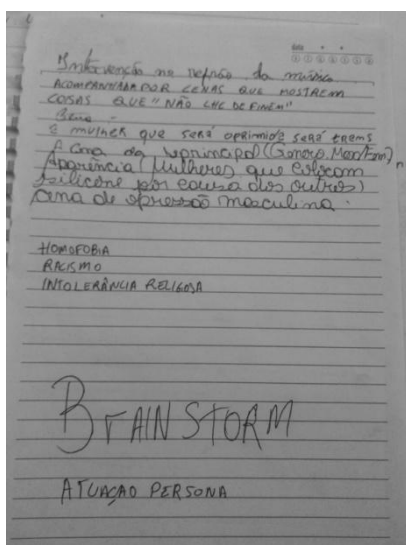 Intervenção no refrão da música
ACOMPANHADA POR CENAS QUE MOSTREM
COISAS QUE "NÃO LHE DEFINEM"
Cena:
E MULHER QUE SERÁ OPRIMIDA SERÁ TRANS
A Cena da principal (Genero, Masc/Fem),
Aparência (Mulheres que colocam
silicone por causa dos outros)
cena de opressão masculina.
HOMOFOBIA
RACISMO
INTOLERÂNCIA RELIGOSA
BRAINSTORM
ATUACAO PERSONA